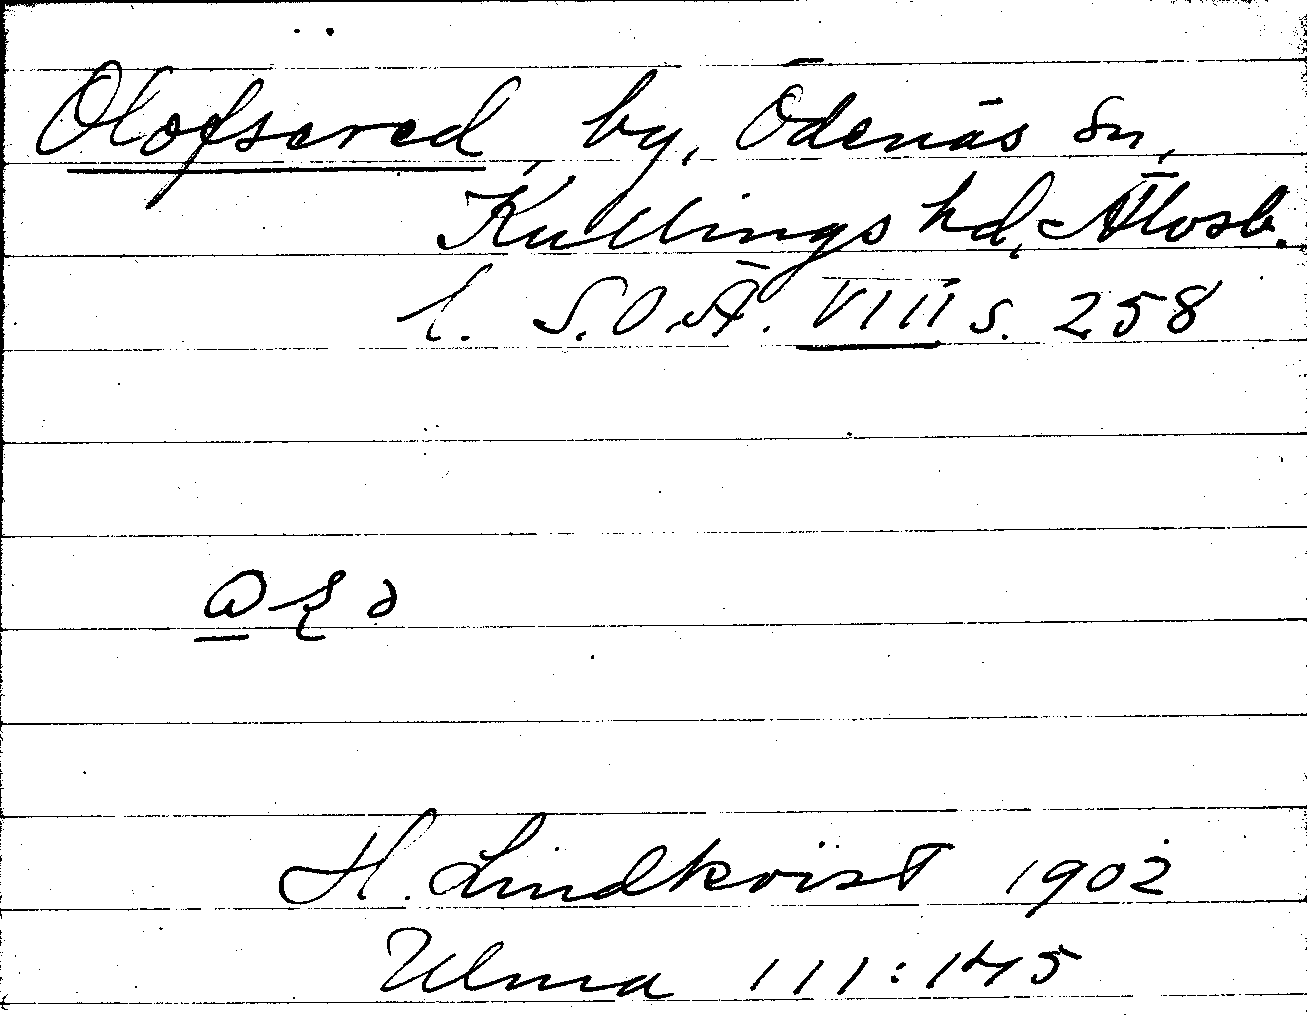 Olofsered, by, Ödenäs sn,
Kullings hd, Älvsb.
l. S.O.Ä. VIII s. 258
H. Lindkvist 1902
Ulma 111:145